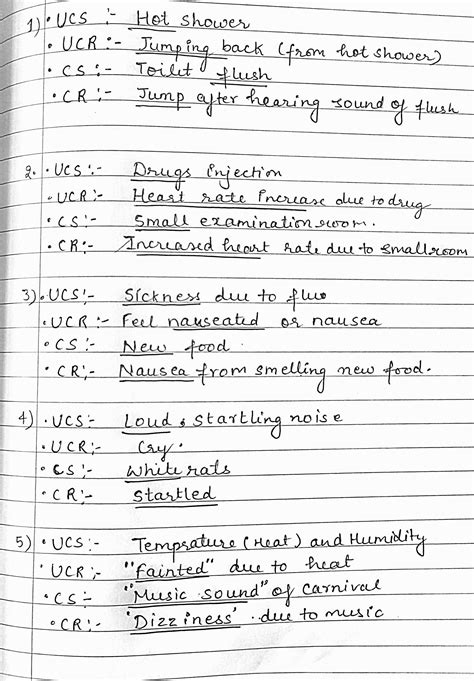 1) • UCS :- Hot shower
• UCR :- Jumping back (from hot shower)
• CS :- Toilet flush
• CR :- Jump after hearing sound of flush
2. • UCS :- Drugs injection
• UCR :- Heart rate increase due to drug
• CS :- Small examination room.
• CR :- Increased heart rate due to small room
3) • UCS :- Sickness due to flu
• UCR :- Feel nauseated or nausea
• CS :- New food.
• CR :- Nausea from smelling new food.
4) • UCS :- Loud & startling noise
• UCR :- Cry.
• CS :- White rats
• CR :- Startled
5) • UCS :- Temprature (Heat) and Humidity
• UCR :- "Fainted" due to heat
• CS :- "Music sound" of carnival
• CR :- 'Dizziness'. due to music